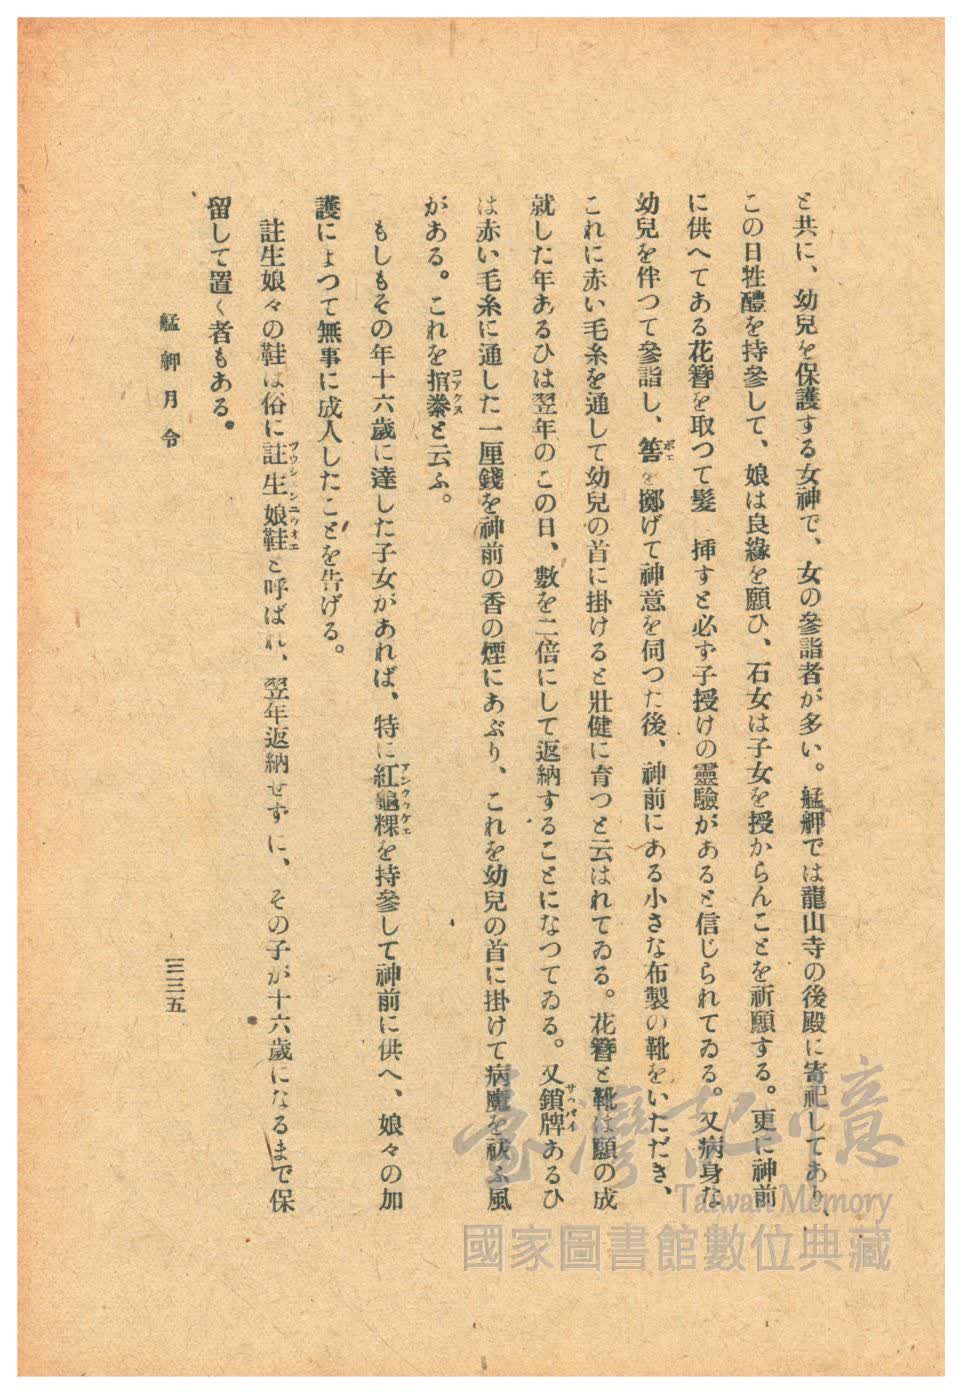 と共に、幼兒を保護する女神で、女の參詣者が多い。艋舺では龍山寺の後殿に寄祀してあり、
この日牲醴を持參して、娘は良緣を願ひ、石女は子女を授からんことを祈願する。更に神前
に供へてある花簪を取つて髮　挿すと必ず子授けの靈驗があると信じられてゐる。又病身な
幼兒を伴つて參詣し、筶を擲げて神意を伺つた後、神前にある小さな布製の靴をいただき、
ポエ
これに赤い毛糸を通して幼兒の首に掛けると壯健に育つと云はれてゐる。花簪と靴は願の成
就した年あるひは翌年のこの日、數を二倍にして返納することになつてゐる。又鎖牌あるひ
サウパイ
は赤い毛糸に通した一厘錢を神前の香の煙にあぶり、これを幼兒の首に掛けて病魔を祓ふ風
がある。これを捾絭と云ふ。
コアクヌ
もしもその年十六歲に達した子女があれば、特に紅龜粿を持參して神前に供へ、娘々の加
アンクウケエ
護によつて無事に成人したことを告げる。
註生娘々の鞋は俗に註生娘鞋と呼ばれ、翌年返納せずに、その子が十六歲になるまで保
ツウシインニウオエ
留して置く者もある。
艋舺月令
三三五
臺灣記憶
Taiwan Memory
國家圖書館數位典藏